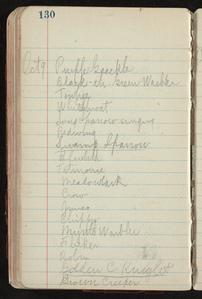 130
Oct 9 Purple Grackle
Black-th Green Warbler
Towhee
Whitethroat
Song Sparrow singing
Redwing
Swamp Sparrow
Bluebird
Titmouse
Meadowlark
Crow
Junco
Chippy
Myrtle Warbler
Flicker
Robin
Golden C. Kinglet
Brown Creeper